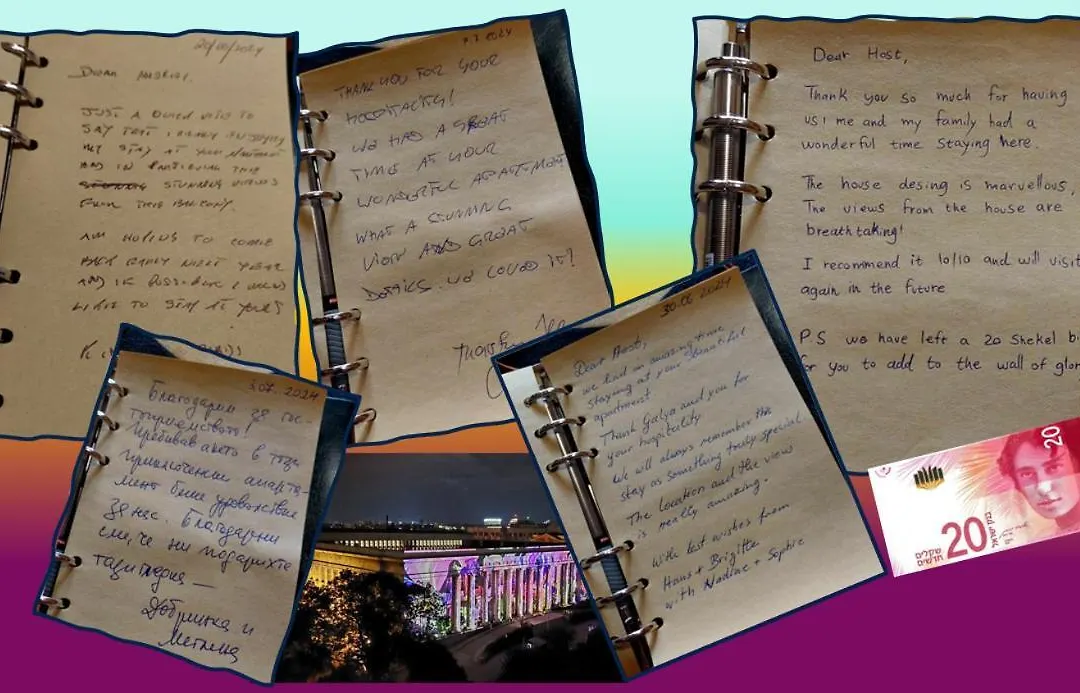 20/06/2024
JUST A QUICK NOTE TO
SAY THAT I REALLY ENJOYED
MY STAY AT YOUR
AND IN PARTICULAR THE
STUNNING VIEWS
FROM THE BALCONY.
AM HOPING TO COME
BACK EARLY NEXT YEAR
AND IF POSSIBLE I WOULD
LIKE TO STAY AT YOURS
7.7.2024
THANK YOU FOR YOUR
HOSPITALITY!
WE HAD A GREAT
TIME AT YOUR
WONDERFUL APARTMENT
WHAT A STUNNING
VIEW AND GREAT
WE LOVED IT!
Dear Host,
Thank you so much for having
us! me and my family had a
wonderful time staying here.
The house desing is marvellous,
The views from the house are
breathtaking!
I recommend it 10/10 and will visit
again in the future
PS we have left a 20 Shekel bi
for you to add to the wall of glor
3.07.2024
Благодарим за гос-
топриемството!
Пребиваването в този
апарта-
мент беше удоволствие
за нас. Благодарни
сме, че ни подарихте
тази гледка —
Добринка и
Методи
30.06.2024
Dear Host,
we had an amazing time
staying at your beautiful
apartment
Thank Galya and you for
your hospitality
We will always remember this
stay as something truly special
The location and the views
is really amazing.
With best wishes from
Hans + Brigitte
with Nadine + Sophie
20
20
שקלים
חדשים